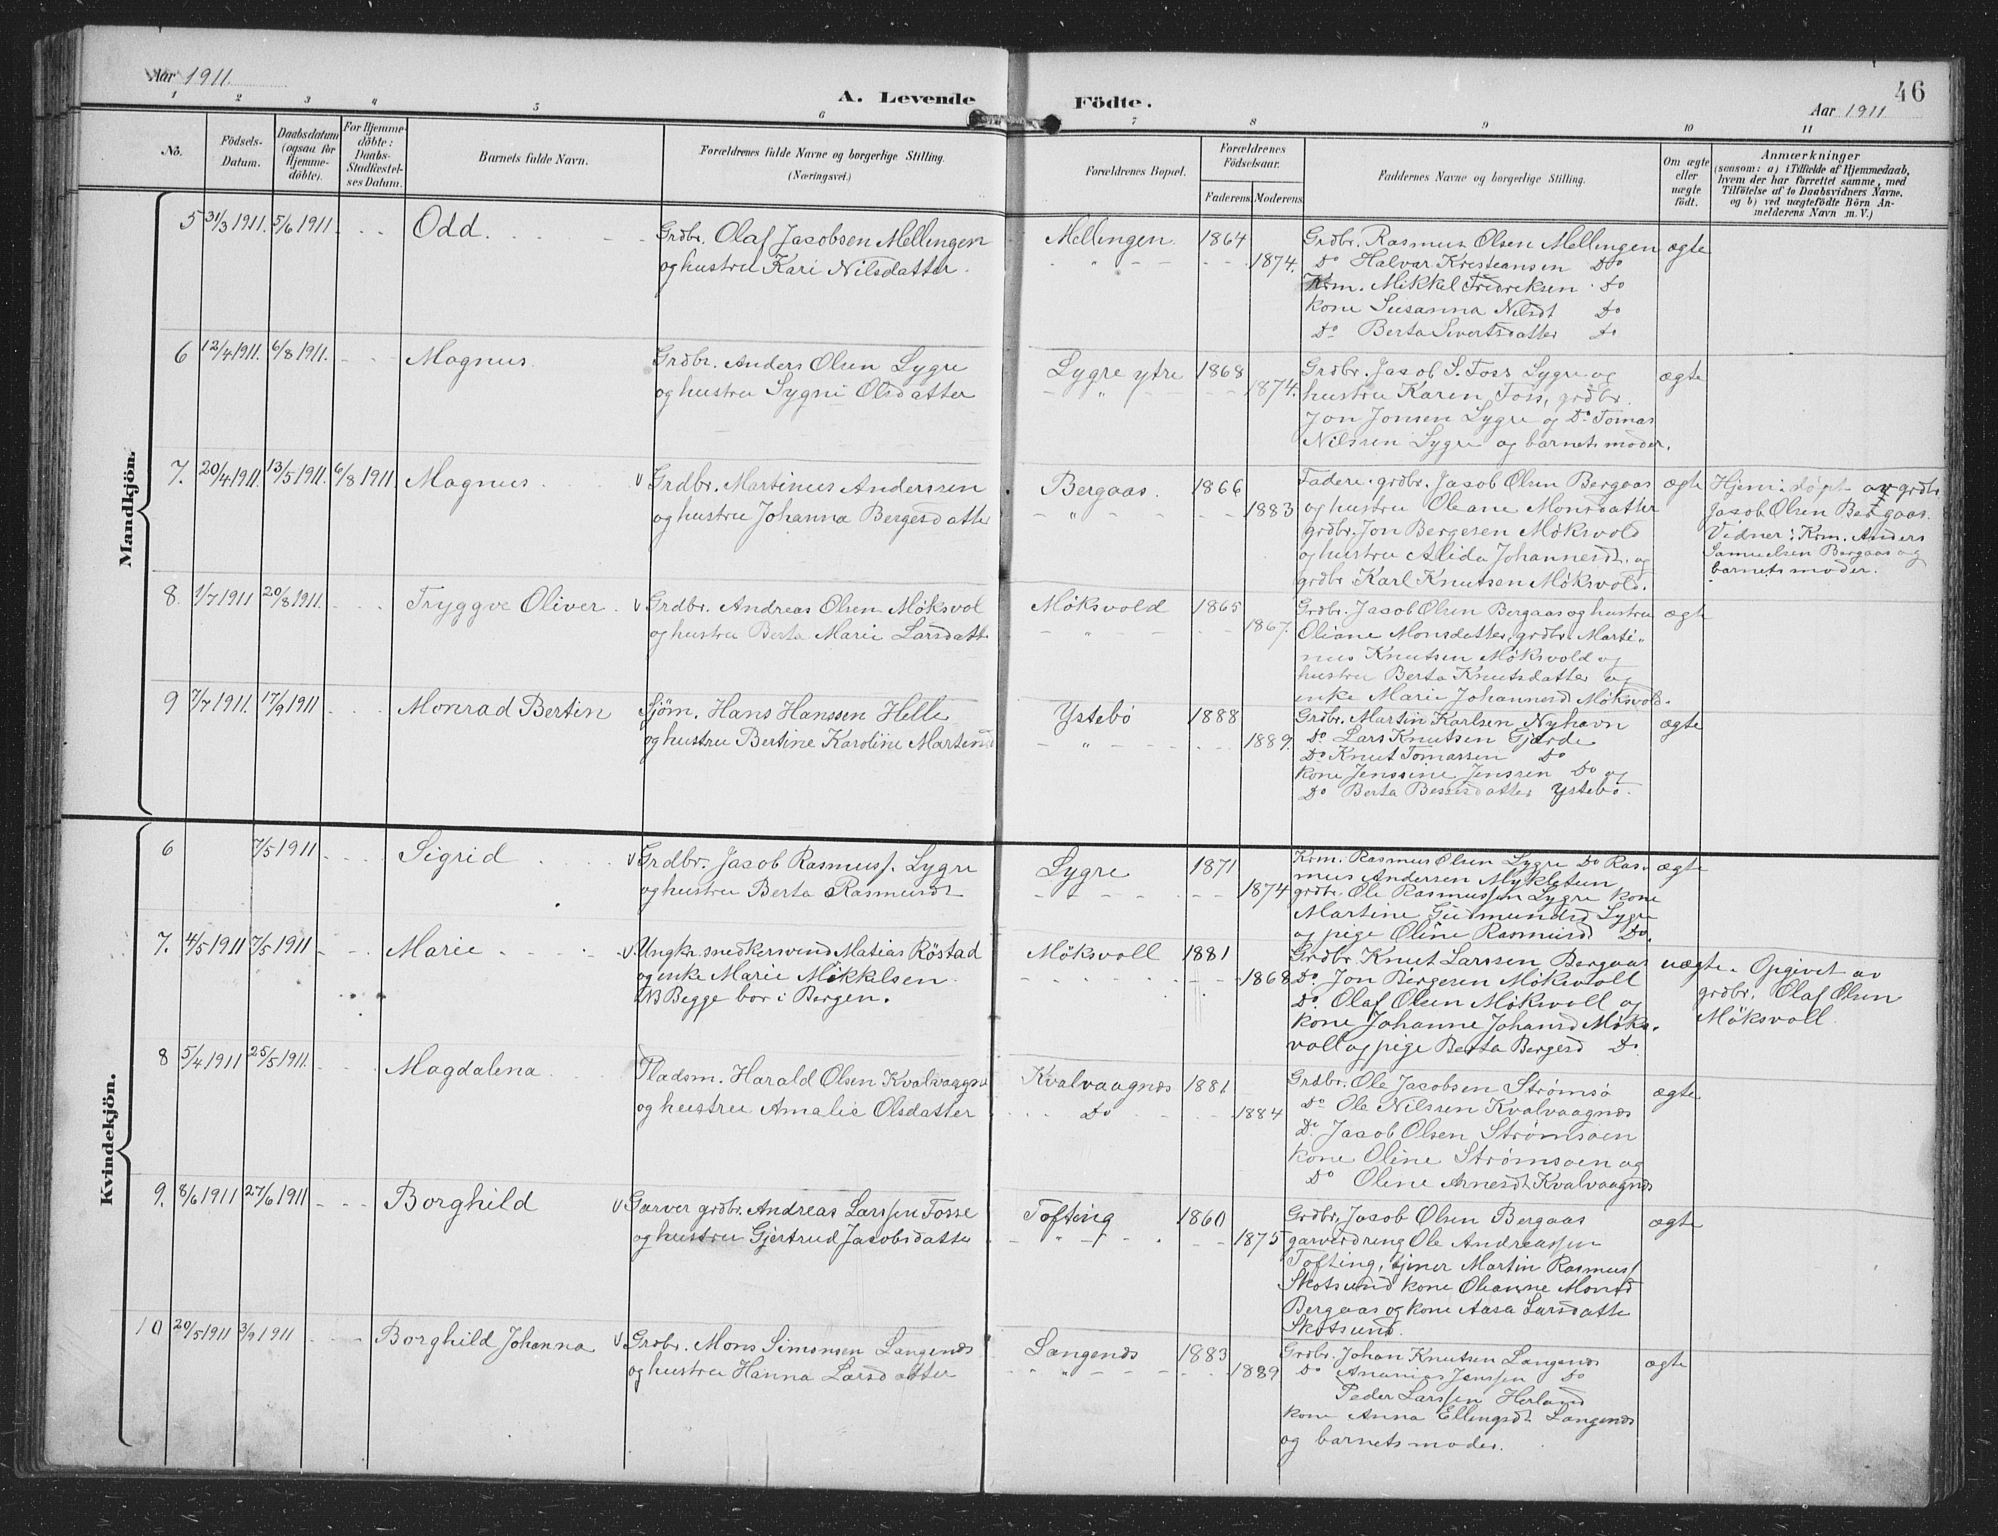 Aar 1911.
A. Levende Födte.
46
Aar 1911
1 2 3 4 5 6 7 8 9 10 11
No.
Födsels-
Datum.
Daabsdatum
(ogsaa for
Hjemme-
döbte).
For Hjemme-
döbte:
Daabs-
Stadfæstel-
ses Datum.
Barnets fulde Navn.
Forældrenes fulde Navne og borgerlige Stilling.
(Næringsvei.)
Forældrenes Bopæl.
Forældrenes
Födselsaar.
Faderens. Moderens.
Faddernes Navne og borgerlige Stilling.
Om ægte
eller
uægte
födt.
Anmærkninger
(saasom: a) i Tilfælde af Hjemmedaab,
hvem der har forrettet samme, med
Tilföielse af to Daabsvidners Navne.
og b) ved uægtefödte Börn An-
melderens Navn m. V.)
Mandkjön.
5 31/3 1911. 5/6 1911 Odd.
Grdbr. Olaf Jacobsen Mellingen
og hustru Kari Nilsdatter.
Mellingen 1864
" 1874.
Grdbr. Rasmus Olsen Mellingen
Do Halvar Kristeansen Do
Krm. Mikkel Fredriksen Do
kone Susanna Nilsdt Do
Do Berta Sivertsdatter Do
ægte
6 12/4 1911. 6/8 1911. Magnus.
Grdbr. Anders Olsen Lygre
og hustru Sygni Olsdatter
Lygre ytre 1868
" 1874.
Grdbr. Jacob S. Foss Lygre og
hustru Karen Foss, grdbr.
Jon Jonsen Lygre og Do Tomas
Nilssen Lygre og barnets moder.
ægte
7. 20/4 1911. 13/5 1911. 6/8 1911. Magnus.
v Grdbr. Martinus Anderssen
og hustru Johanna Bergesdatter
Bergaas. 1866
" 1883
Fadere: grdbr. Jacob Olsen Bergaas
og hustru Oleane Monsdatter
grdbr. Jon Bergesen Møksvold
og hustru Alida Johannesdt. og
grdbr Karl Knutsen Møksvold.
ægte
Hjem. døpt av grdbr
Jacob Olsen Bergaas.
Vidner: Krm. Anders
Samuelsen Bergaas og
barnets moder.
8. 1/7 1911 20/8 1911. Tryggve Oliver.
v Grdbr. Andreas Olsen Møksvol
og hustru Berta Marie Larsdatt.
Møksvold 1865
" 1867.
Grdbr. Jacob Olsen Bergaas og hustru
Oliane Monsdatter, grdbr. Marti„
nus Knutsen Møksvold og
hustru Berta Knutsdatter og
enke Marie Johannesd Møksvold.
ægte
9 7/7 1911. 17/9 1911 Monrad Bertin
Sjöm. Hans Hanssen Helle
og hustru Bertine Karoline Martinsd
Ystebö 1888
" 1889.
Grdbr. Martin Karlsen Nyhavn
Do Lars Knutsen Gjerde
Do Knut Tomassen Do
kone Jenssine Jenssen Do og
Do Berta Bessesdatter Ystebö.
ægte
Kvindekjön.
6 7/5 1911 Sigrid
v Grdbr. Jacob Rasmuss. Lygre
og hustru Berta Rasmusdt
Lygre 1871
1874
Krm. Rasmus Olsen Lygre Do Ras-
mus Andersen Mykletun
grdbr. Ole Rasmussen Lygre kone
Martine Gudmundsd Lygre
og pige Oline Rasmusd Do.
ægte
7. 4/5 1911 7/5 1911 Marie
v. Ungkr. snedkersvend Matias Röstad
og enke Marie Mikkelsen.
NB Begge bor i Bergen.
Möksvoll 1881
1868
Grdbr. Knut Larssen Bergaas
Do Jon Bergesen Möksvoll
Do Olaf Olsen Møksvoll og
kone Johanne Johansd Møks.
voll og pige Berta Bergesd Do.
uægte.
Opgivet av
grdbr. Olaf Olsen
Möksvoll.
8 5/4 1911 25/5 1911. Magdalena
Pladsm. Harald Olsen Kvalvaagnes
og hustru Amalie Olsdatter
Kvalvaagnes 1881
Do 1884
Grdbr. Ole Jacobsen Strømsö
Do Ole Nilssen Kvalvaagnes
Do Jacob Olsen Strømsoen
kone Oline Strømsoen og
Do Oline Arnesdt Kvalvaagnes
ægte
9. 8/6 1911 27/6 1911 Borghild
v Garver grdbr. Andreas Larssen Tosse
og hustru Gjertrud Jacobsdatte
Tofting 1860
" 1875
Grdbr. Jacob Olsen Bergaas
garverdreng Ole Andreassen
Tofting, tjener Martin Rasmuss
Skotsund kone Oleanne Monsd
Bergaas og kone Aasa Larsdatte
Skotsund.
ægte
10 20/5 1911 3/9 1911 Borghild Johanna
v Grdbr. Mons Simonsen Langenes
og hustru Hanna Larsdatter
Langenes 1883
" 1889
Grdbr. Johan Knutsen Langenes
Do Ananias Jenssen Do
Peder Larssen Herland
kone Anna Ellingsdt Langenes
og barnets moder.
ægte